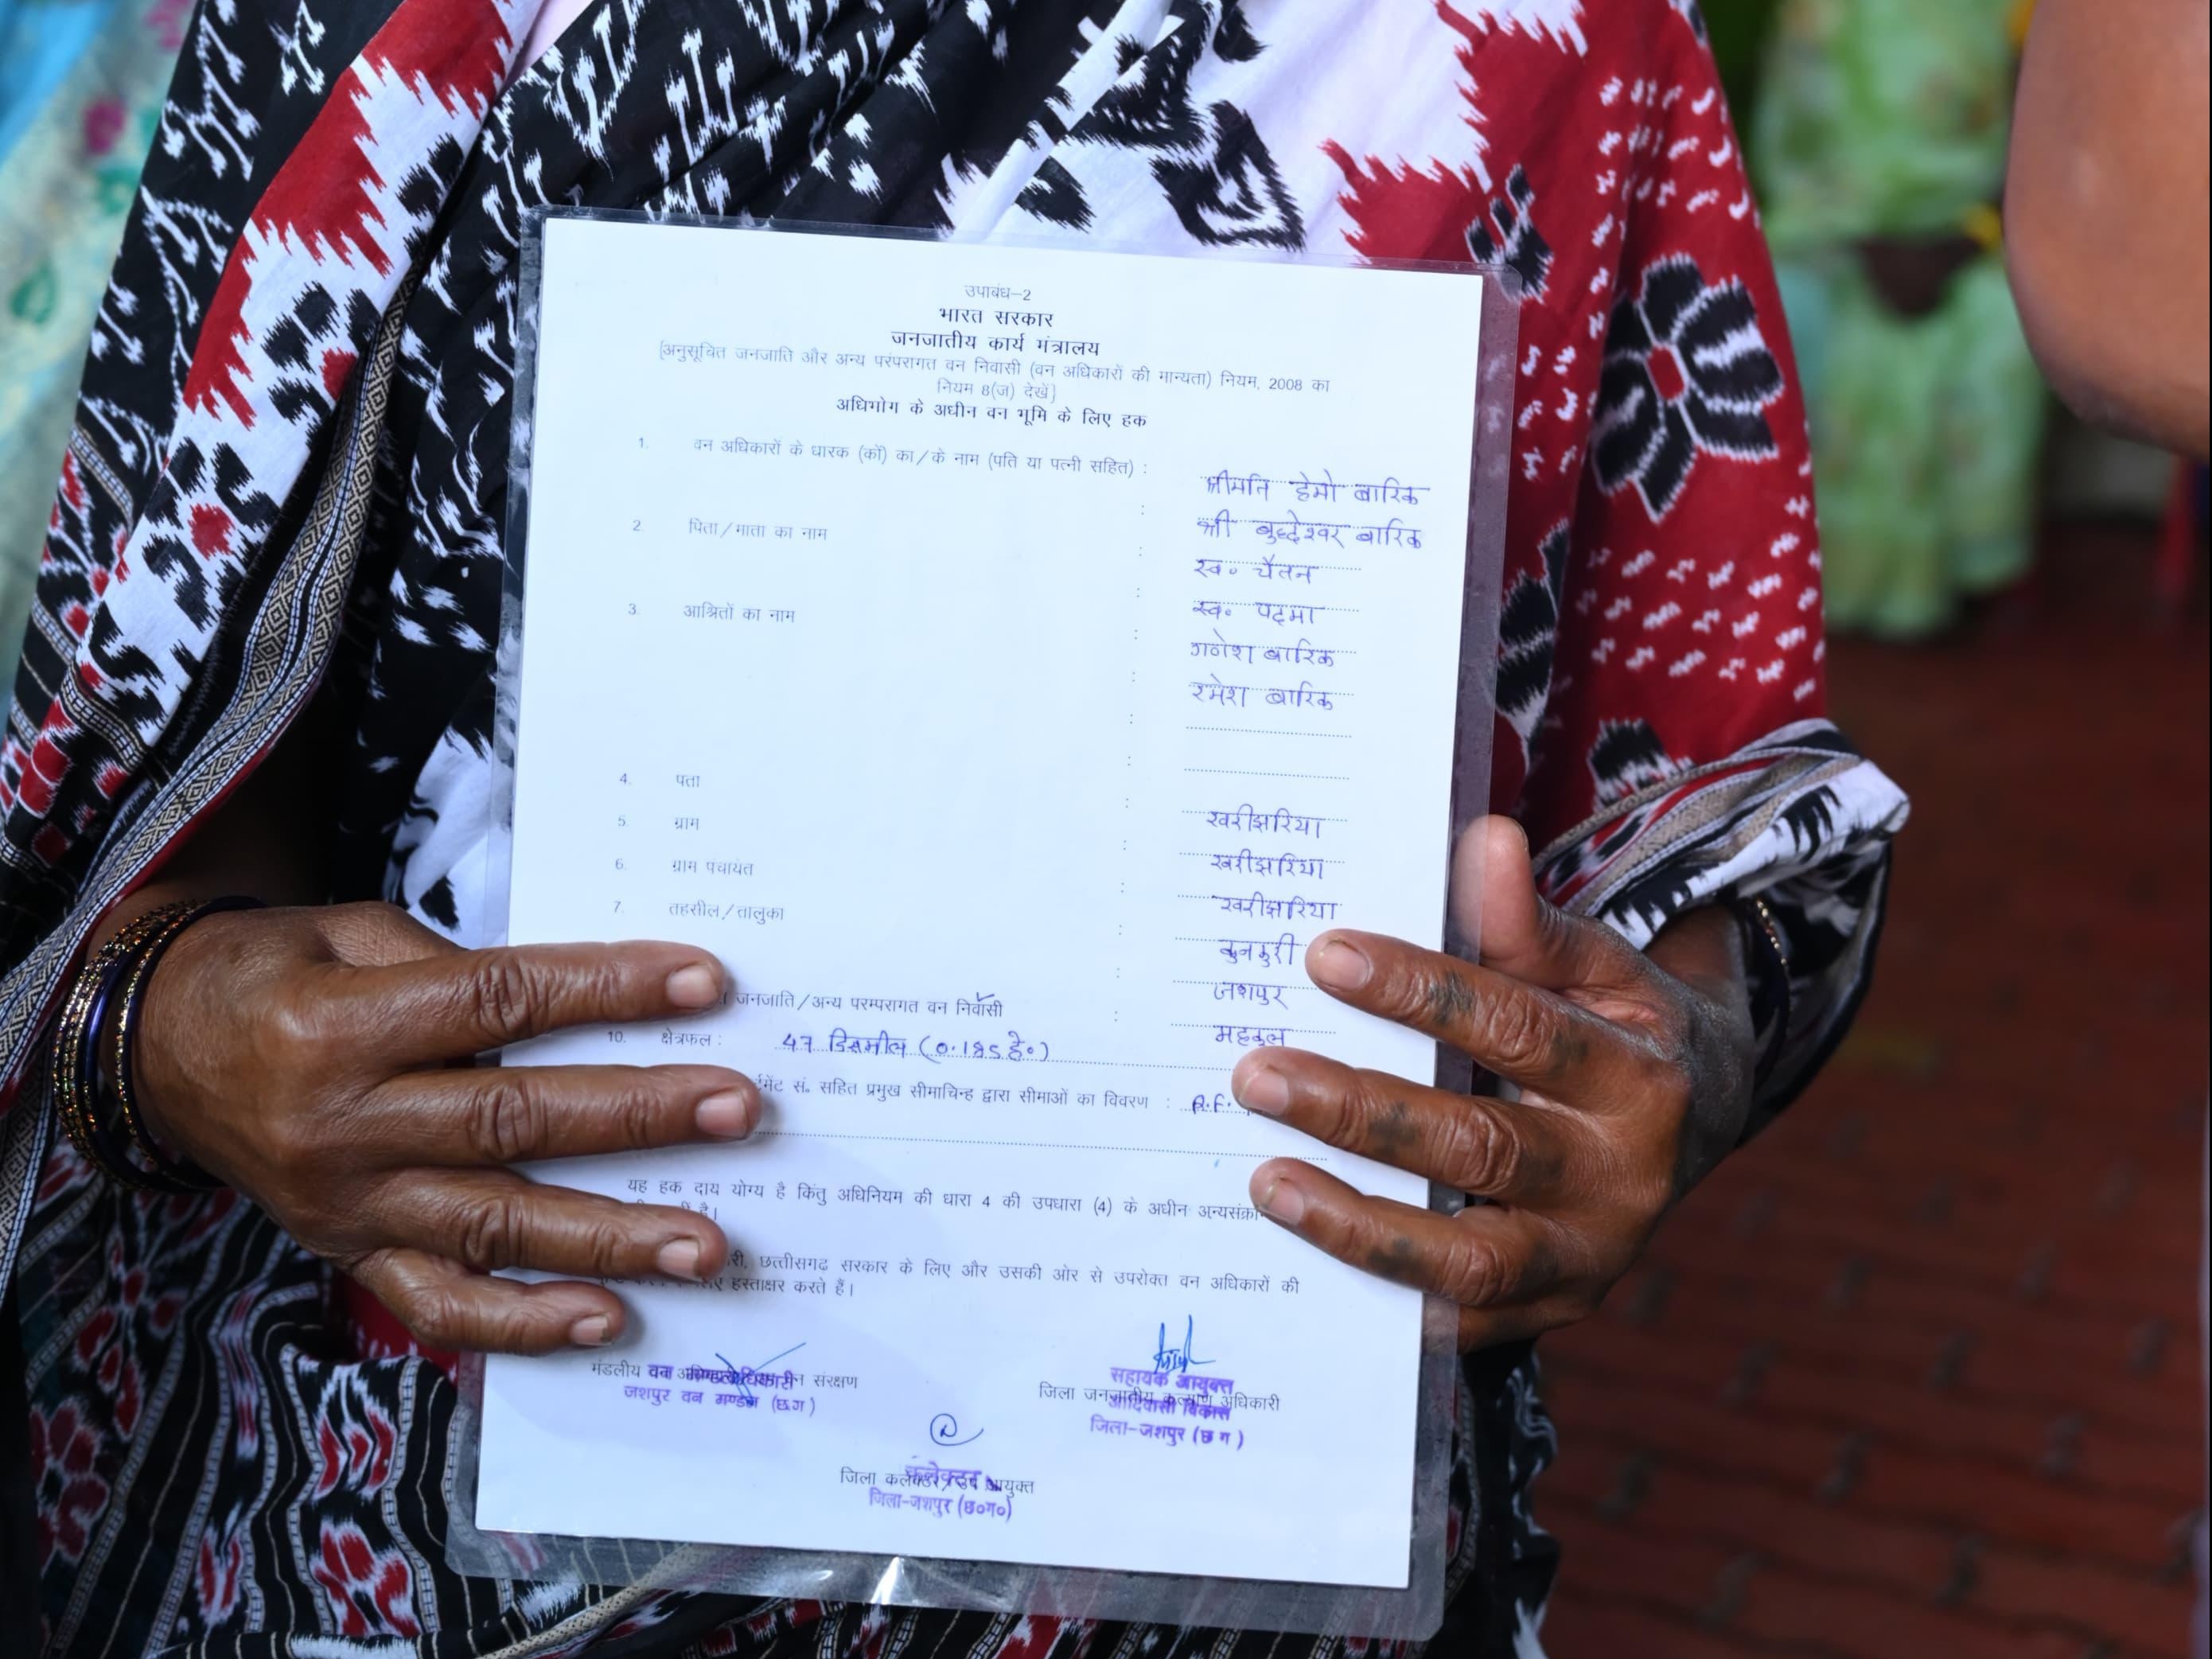 उपाबंध–2
भारत सरकार
जनजातीय कार्य मंत्रालय
[अनुसूचित जनजाति और अन्य परंपरागत वन निवासी (वन अधिकारों की मान्यता) नियम, 2008 का
नियम 8(ज) देखें]
अधिभोग के अधीन वन भूमि के लिए हक
1. वन अधिकारों के धारक (कों) का/के नाम (पति या पत्नी सहित) :
श्रीमति हेमो बारिक
2. पिता/माता का नाम : श्री बुद्धेश्वर बारिक
: स्व॰ चैतन
3. आश्रितों का नाम : स्व॰ पदमा
: गणेश बारिक
: रमेश बारिक
4. पता
5. ग्राम : खरीझरिया
6. ग्राम पंचायत : खरीझरिया
7. तहसील/तालुका : खरीझरिया
: कुनकुरी
: जशपुर
जनजाति/अन्य परम्परागत वन निवासी : महकुल
10. क्षेत्रफल : 47 डिसमील (0.185 हे॰)
सं. सहित प्रमुख सीमाचिन्ह द्वारा सीमाओं का विवरण : R.F.
यह हक दाय योग्य है किंतु अधिनियम की धारा 4 की उपधारा (4) के अधीन
है।
छत्तीसगढ़ सरकार के लिए और उसकी ओर से उपरोक्त वन अधिकारों की
हस्ताक्षर करते हैं।
मंडलीय वन संरक्षण
जशपुर वन मण्डल (छ.ग)
सहायक आयुक्त
जिला जनजातीय कल्याण अधिकारी
आदिवासी विकास
जिला-जशपुर (छ ग)
कलेक्टर
जिला कलेक्टर/उप आयुक्त
जिला-जशपुर (छ०ग०)